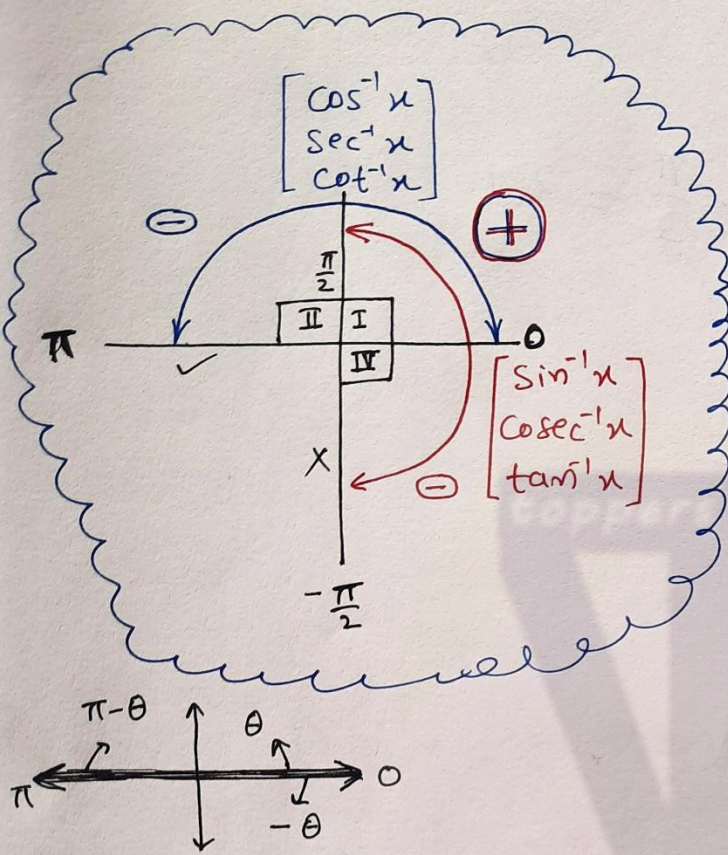 cos⁻¹x
sec⁻¹x
cot⁻¹x
⊖
+
π/2
II I
π
0
✓
IV
sin⁻¹x
cosec⁻¹x
tan⁻¹x
×
⊖
toppers
-π/2
π-θ
θ
π
0
-θ